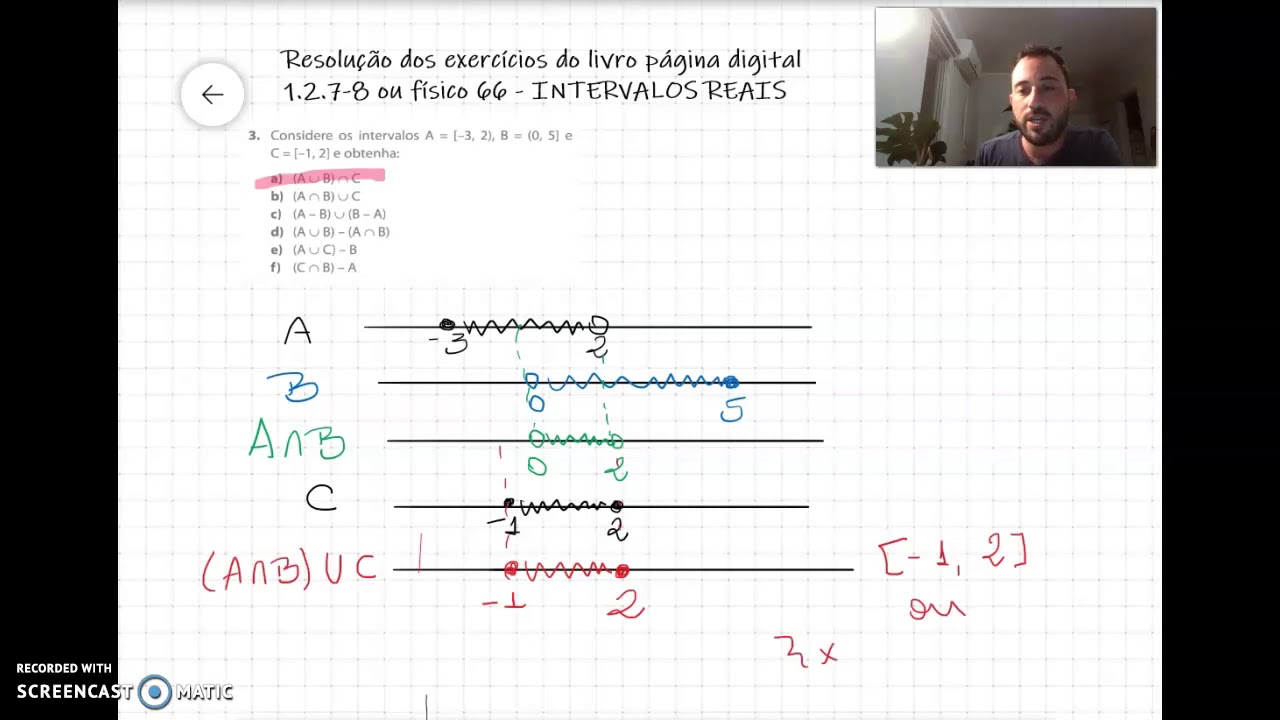 Resolução dos exercícios do livro página digital
1.2.7-8 ou físico 66 - INTERVALOS REAIS
3. Considere os intervalos A = [–3, 2), B = (0, 5] e
C = [–1, 2] e obtenha:
a) (A ∪ B) ∩ C
b) (A ∩ B) ∪ C
c) (A – B) ∪ (B – A)
d) (A ∪ B) – (A ∩ B)
e) (A ∪ C) – B
f) (C ∩ B) – A
A
-3 2
B
0 5
A∩B
0 2
C
-1 2
(A∩B) ∪ C
-1 2
[-1, 2]
ou
x
RECORDED WITH
SCREENCAST MATIC